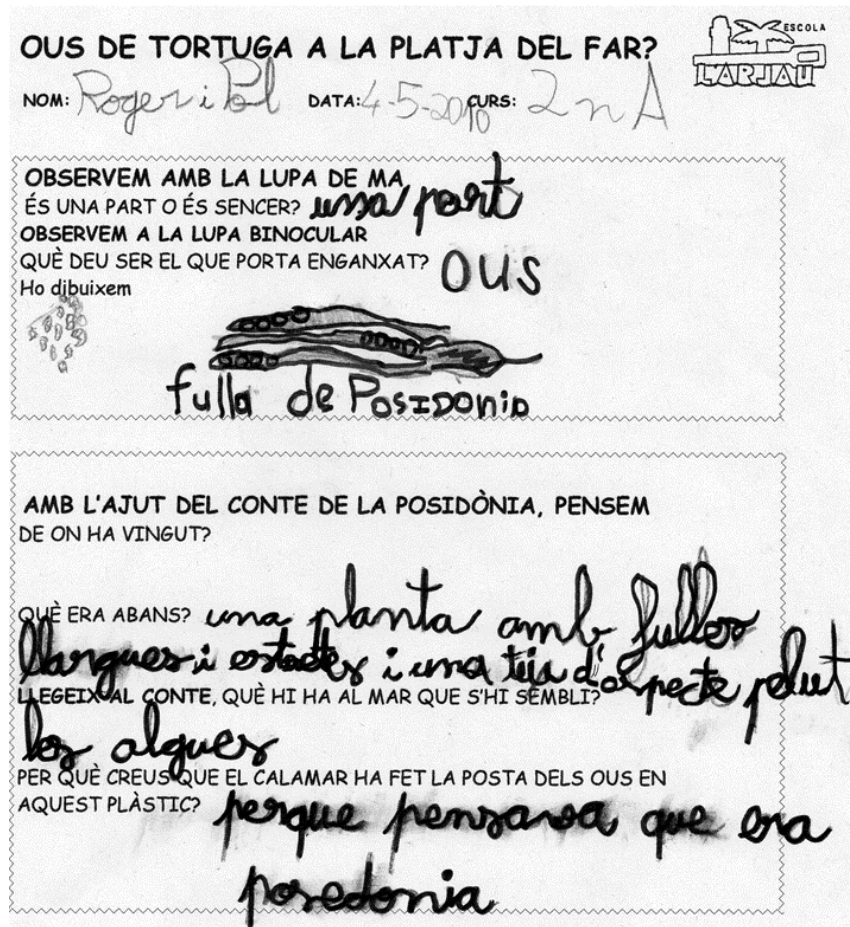 OUS DE TORTUGA A LA PLATJA DEL FAR?
ESCOLA
L'ARJAU
NOM: Roger i Pol DATA: 4-5-2010 CURS: 2n A
OBSERVEM AMB LA LUPA DE MA
ÉS UNA PART O ÉS SENCER? una part
OBSERVEM A LA LUPA BINOCULAR
QUÈ DEU SER EL QUE PORTA ENGANXAT? OUS
Ho dibuixem
fulla de Posidonia
AMB L'AJUT DEL CONTE DE LA POSIDÒNIA, PENSEM
DE ON HA VINGUT?
QUÈ ERA ABANS? una planta amb fulles
llargues i estretes i una tija d'aspecte pelut
LLEGEIX AL CONTE, QUÈ HI HA AL MAR QUE S'HI SEMBLI?
les algues
PER QUÈ CREUS QUE EL CALAMAR HA FET LA POSTA DELS OUS EN
AQUEST PLÀSTIC? perque pensava que era
posedonia